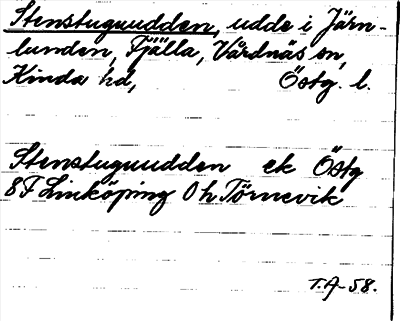 Stenstuguudden, udde i Järn-
lunden, Fjälla, Vårdnäs sn,
Kinda hd, Östg. l.
Stenstuguudden ek Östg
8F Linköping 0h Törnevik
T.A-58.